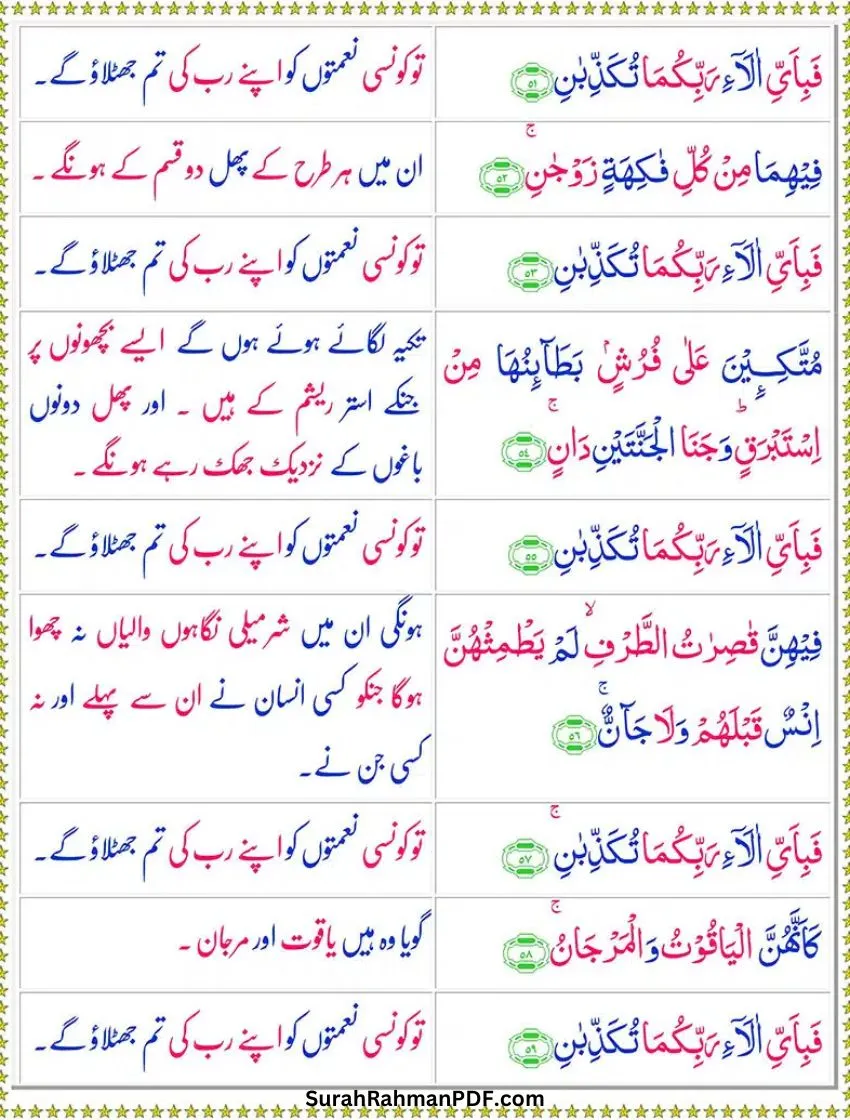 فَبِاَيِّ اٰلَآءِ رَبِّكُمَا تُكَذِّبٰنِ ۝٥١
تو کونسی نعمتوں کو اپنے رب کی تم جھٹلاؤ گے۔
فِيْهِمَا مِنْ كُلِّ فَاكِهَةٍ زَوْجٰنِ ۚ ۝٥٢
ان میں ہر طرح کے پھل دو قسم کے ہونگے ۔
فَبِاَيِّ اٰلَآءِ رَبِّكُمَا تُكَذِّبٰنِ ۝٥٣
تو کونسی نعمتوں کو اپنے رب کی تم جھٹلاؤ گے۔
مُتَّكِـِٕيْنَ عَلٰى فُرُشٍۭ بَطَآئِنُهَا مِنْ
اِسْتَبْرَقٍ ؕ وَجَنَا الْجَنَّتَيْنِ دَانٍ ۚ ۝٥٤
تکیہ لگائے ہوئے ہوں گے ایسے بچھونوں پر
جنکے استر ریشم کے ہیں ۔ اور پھل دونوں
باغوں کے نزدیک جھک رہے ہونگے ۔
فَبِاَيِّ اٰلَآءِ رَبِّكُمَا تُكَذِّبٰنِ ۝٥٥
تو کونسی نعمتوں کو اپنے رب کی تم جھٹلاؤ گے۔
فِيْهِنَّ قٰصِرٰتُ الطَّرْفِ ۙ لَمْ يَطْمِثْهُنَّ
اِنْسٌ قَبْلَهُمْ وَلَا جَآنٌّ ۚ ۝٥٦
ہونگی ان میں شرمیلی نگاہوں والیاں نہ چھوا
ہوگا جنکو کسی انسان نے ان سے پہلے اور نہ
کسی جن نے۔
فَبِاَيِّ اٰلَآءِ رَبِّكُمَا تُكَذِّبٰنِ ۚ ۝٥٧
تو کونسی نعمتوں کو اپنے رب کی تم جھٹلاؤ گے۔
كَاَنَّهُنَّ الْيَاقُوْتُ وَالْمَرْجَانُ ۚ ۝٥٨
گویا وہ ہیں یاقوت اور مرجان ۔
فَبِاَيِّ اٰلَآءِ رَبِّكُمَا تُكَذِّبٰنِ ۝٥٩
تو کونسی نعمتوں کو اپنے رب کی تم جھٹلاؤ گے۔
SurahRahmanPDF.com